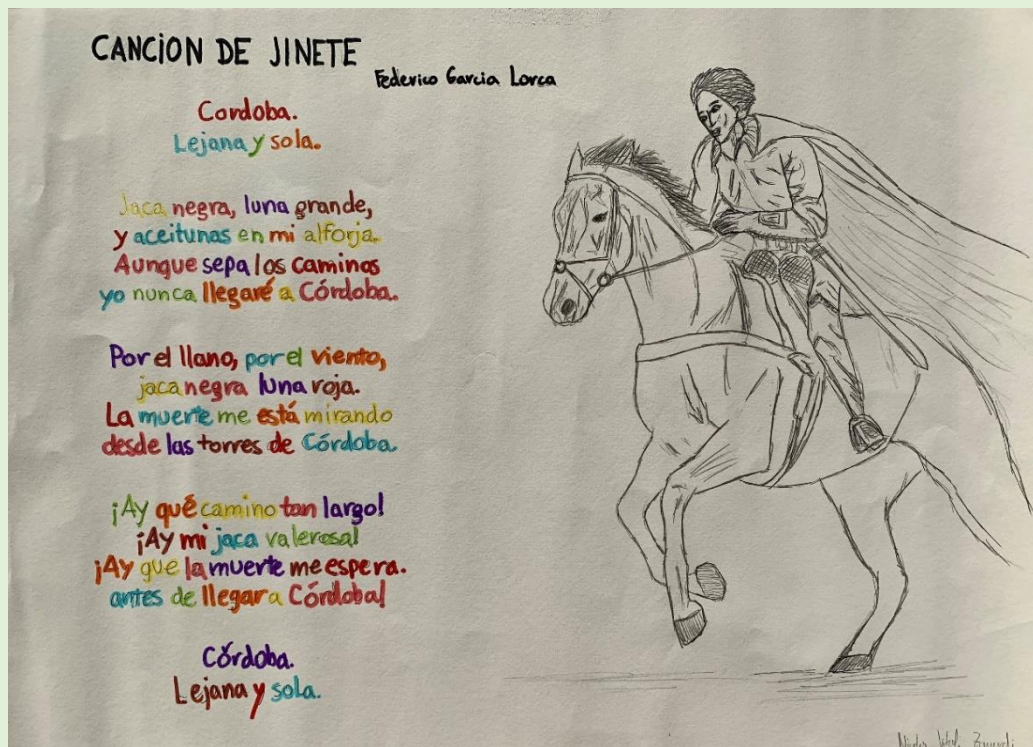 CANCION DE JINETE
Federico Garcia Lorca
Cordoba.
Lejana y sola.
Jaca negra, luna grande,
y aceitunas en mi alforja.
Aunque sepa los caminos
yo nunca llegaré a Córdoba.
Por el llano, por el viento,
jaca negra luna roja.
La muerte me está mirando
desde las torres de Córdoba.
¡Ay qué camino tan largo!
¡Ay mi jaca valerosa!
¡Ay que la muerte me espera.
antes de llegar a Córdoba!
Córdoba.
Lejana y sola.